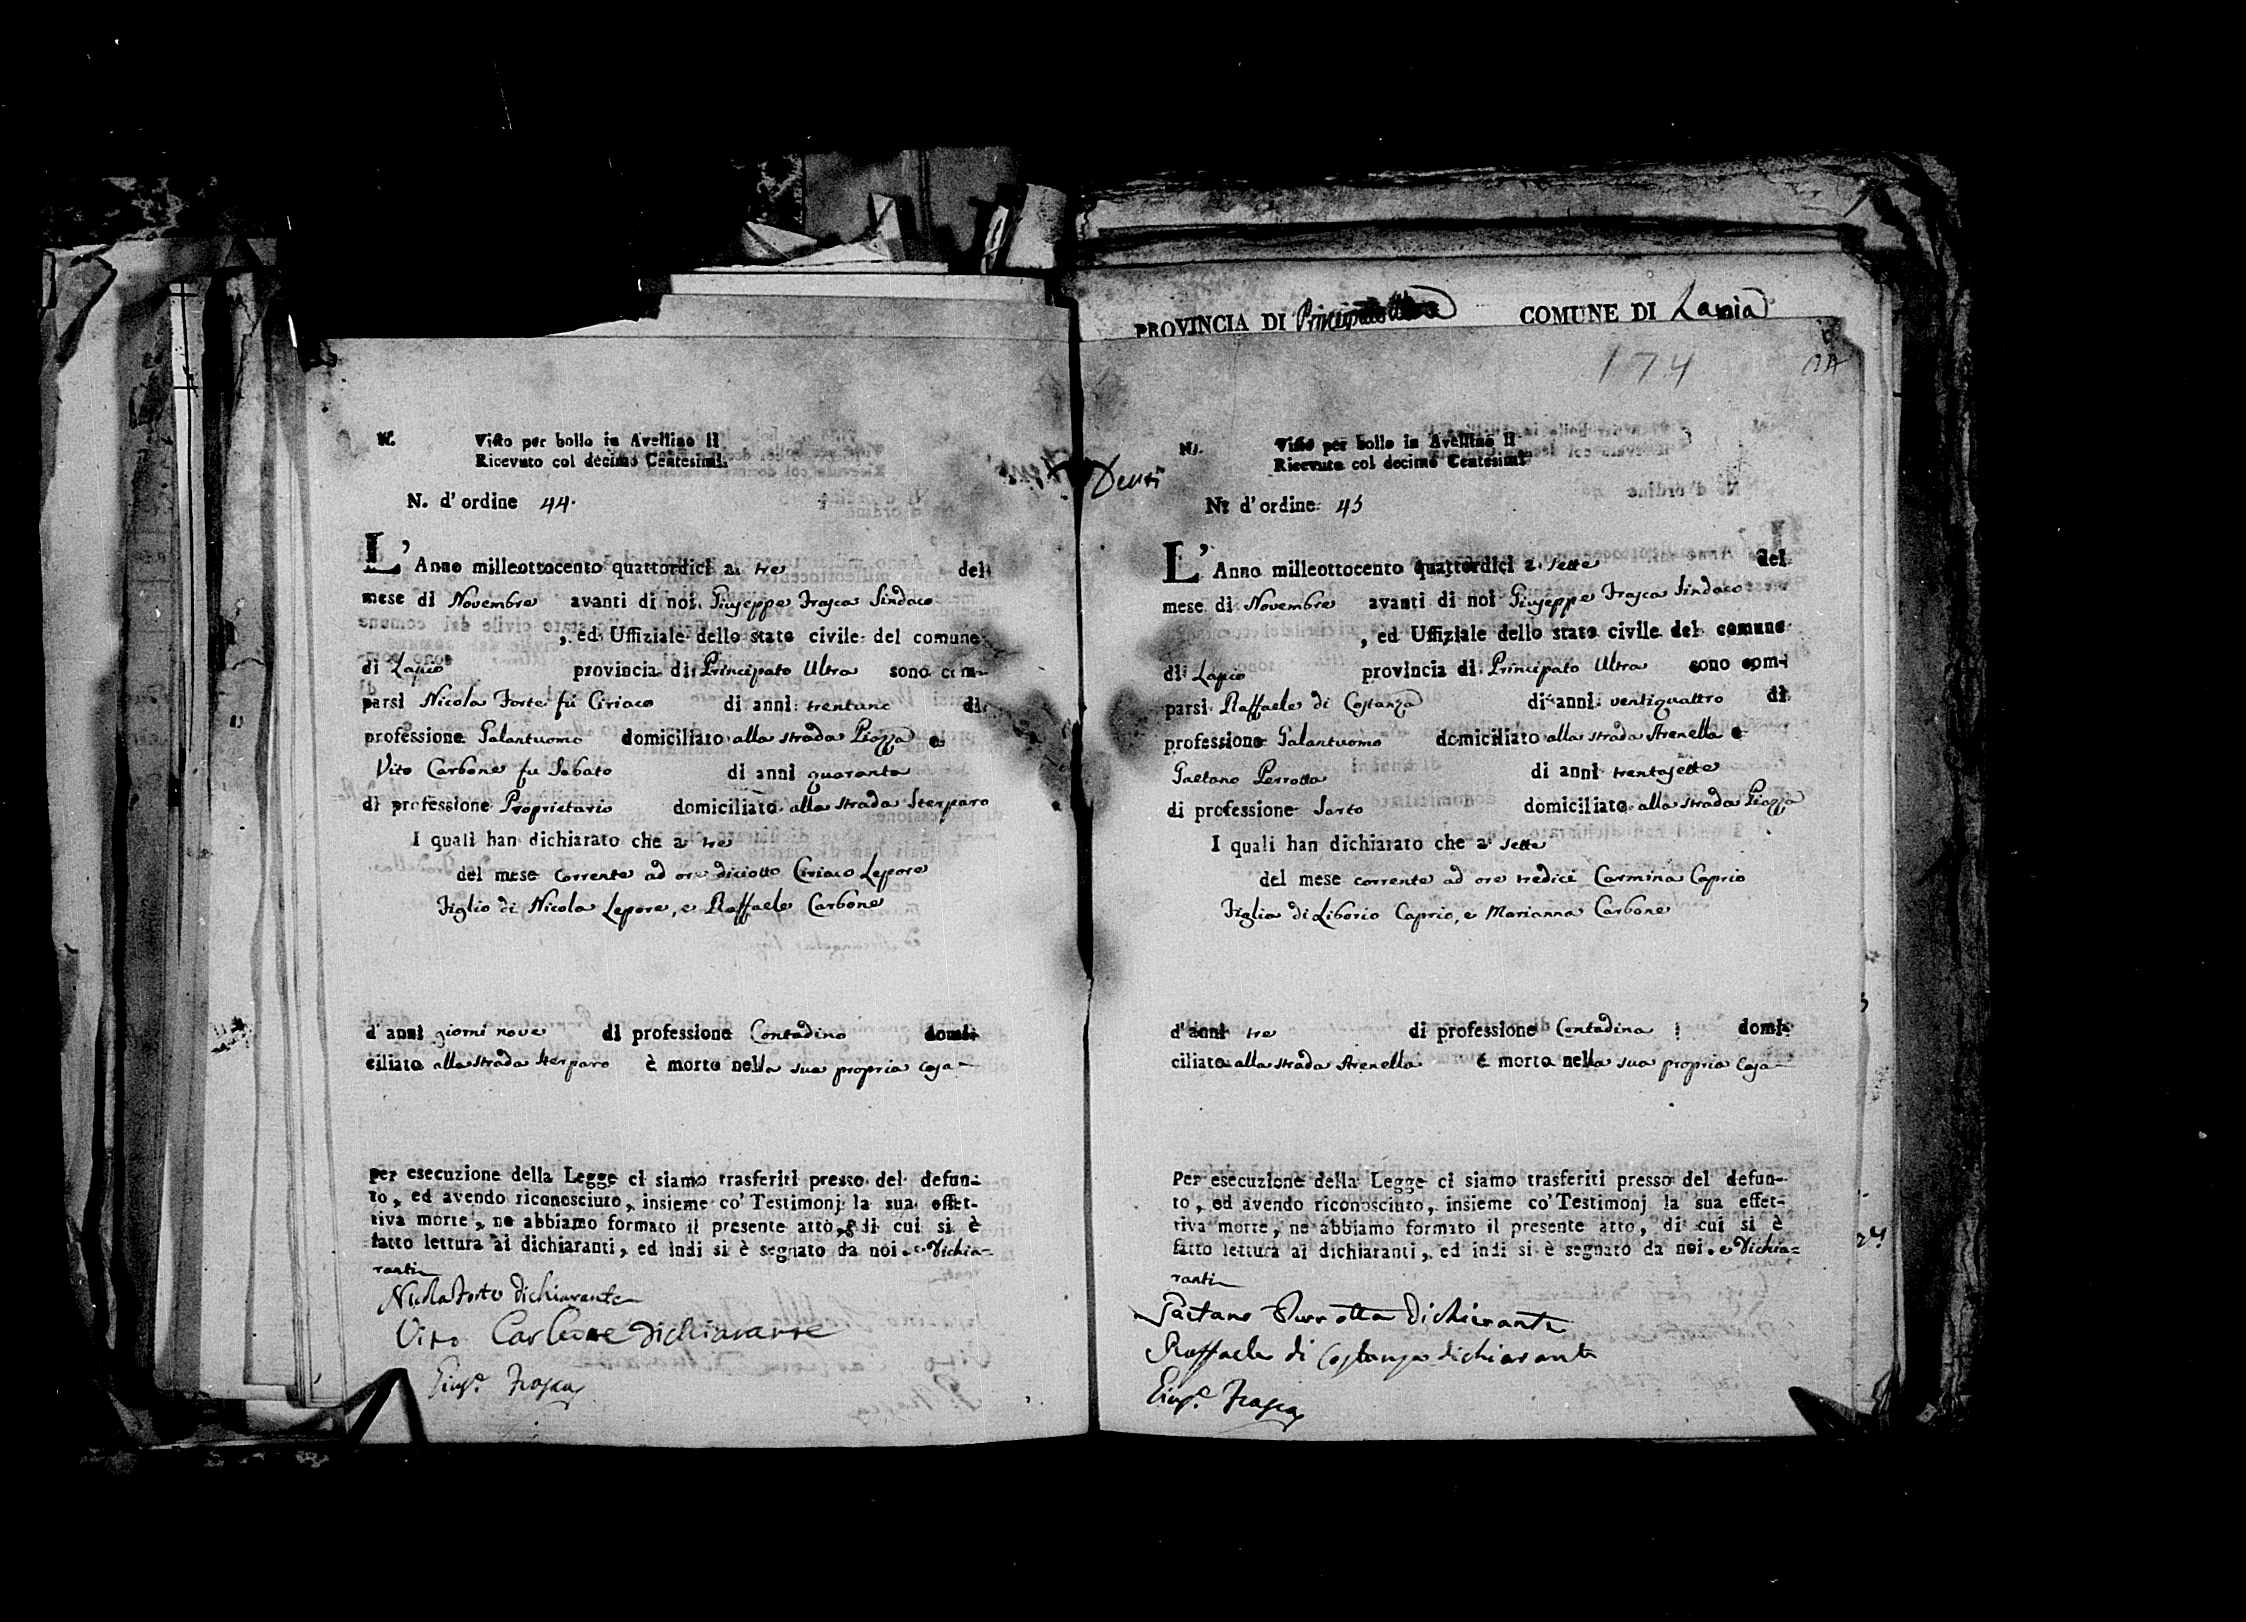 N. Visto per bollo in Avellino li
Ricevuto col decimo Centesimi.
N. d'ordine 44.
L'Anno milleottocento quattordici a tre del
mese di Novembre avanti di noi Giuseppe Frasca Sindaco
, ed Uffiziale dello stato civile del comune
di Lapio provincia di Principato Ultra sono com-
parsi Nicola Forte fù Ciriaco di anni trentuno di
professione Galantuomo domiciliato alla strada Piazza e
Vito Carbone fu Sabato di anni quaranta
di professione Proprietario domiciliato alla strada Sterparo
I quali han dichiarato che a tre
del mese corrente ad ore diciotto Ciriaco Lepore
Figlio di Nicola Lepore, e Raffaele Carbone
d'anni giorni nove di professione Contadino domi-
ciliato alla strada Sterparo è morto nella sua propria casa
Per esecuzione della Legge ci siamo trasferiti presso del defun-
to, ed avendo riconosciuto, insieme co' Testimonj la sua effet-
tiva morte, ne abbiamo formato il presente atto, di cui si è
fatto lettura ai dichiaranti, ed indi si è segnato da noi. e Dichia=
ranti
Nicola Forte dichiarante
Vito Carbone dichiarante
Giuse. Frasca
PROVINCIA DI Principato Ultra COMUNE DI Lapio
174
N. Visto per bollo in Avellino li
Ricevuto col decimo Centesimi
N. d'ordine 45
L'Anno milleottocento quattordici a sette del
mese di Novembre avanti di noi Giuseppe Frasca Sindaco
, ed Uffiziale dello stato civile del comune
di Lapio provincia di Principato Ultra sono com-
parsi Raffaele di Costanza di anni ventiquattro di
professione Galantuomo domiciliato alla strada Arenella e
Gaetano Perrotta di anni trentasette
di professione Sarto domiciliato alla strada Piazza
I quali han dichiarato che a sette
del mese corrente ad ore tredici Carmina Caprio
Figlia di Liborio Caprio, e Marianna Carbone
d'anni tre di professione Contadina domi-
ciliato alla strada Arenella è morto nella sua propria casa
Per esecuzione della Legge ci siamo trasferiti presso del defun-
to, ed avendo riconosciuto, insieme co' Testimonj la sua effet-
tiva morte, ne abbiamo formato il presente atto, di cui si è
fatto lettura ai dichiaranti, ed indi si è segnato da noi. e Dichia=
ranti
Gaetano Perrotta Dichiarante
Raffaele di Costanza dichiarante
Giuse. Frasca